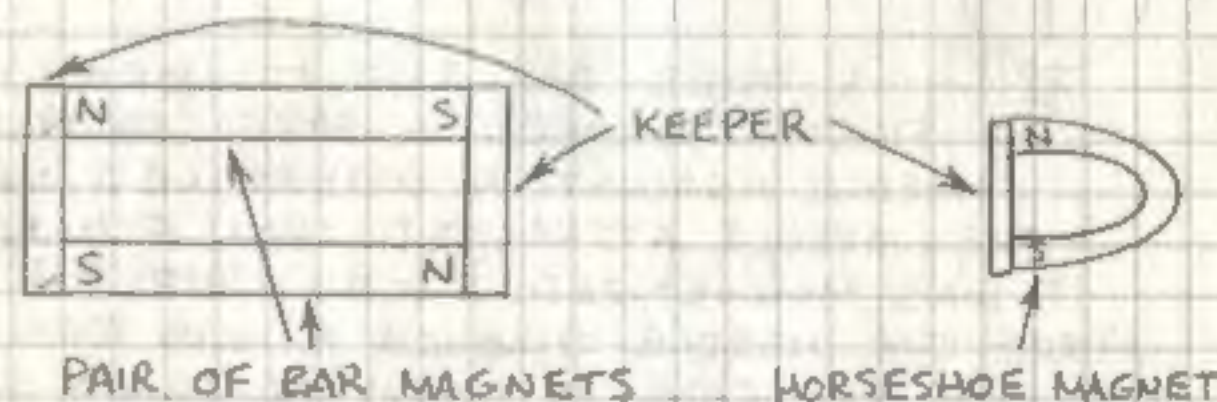 N S
KEEPER
N
S N
S
PAIR OF BAR MAGNETS . . HORSESHOE MAGNET